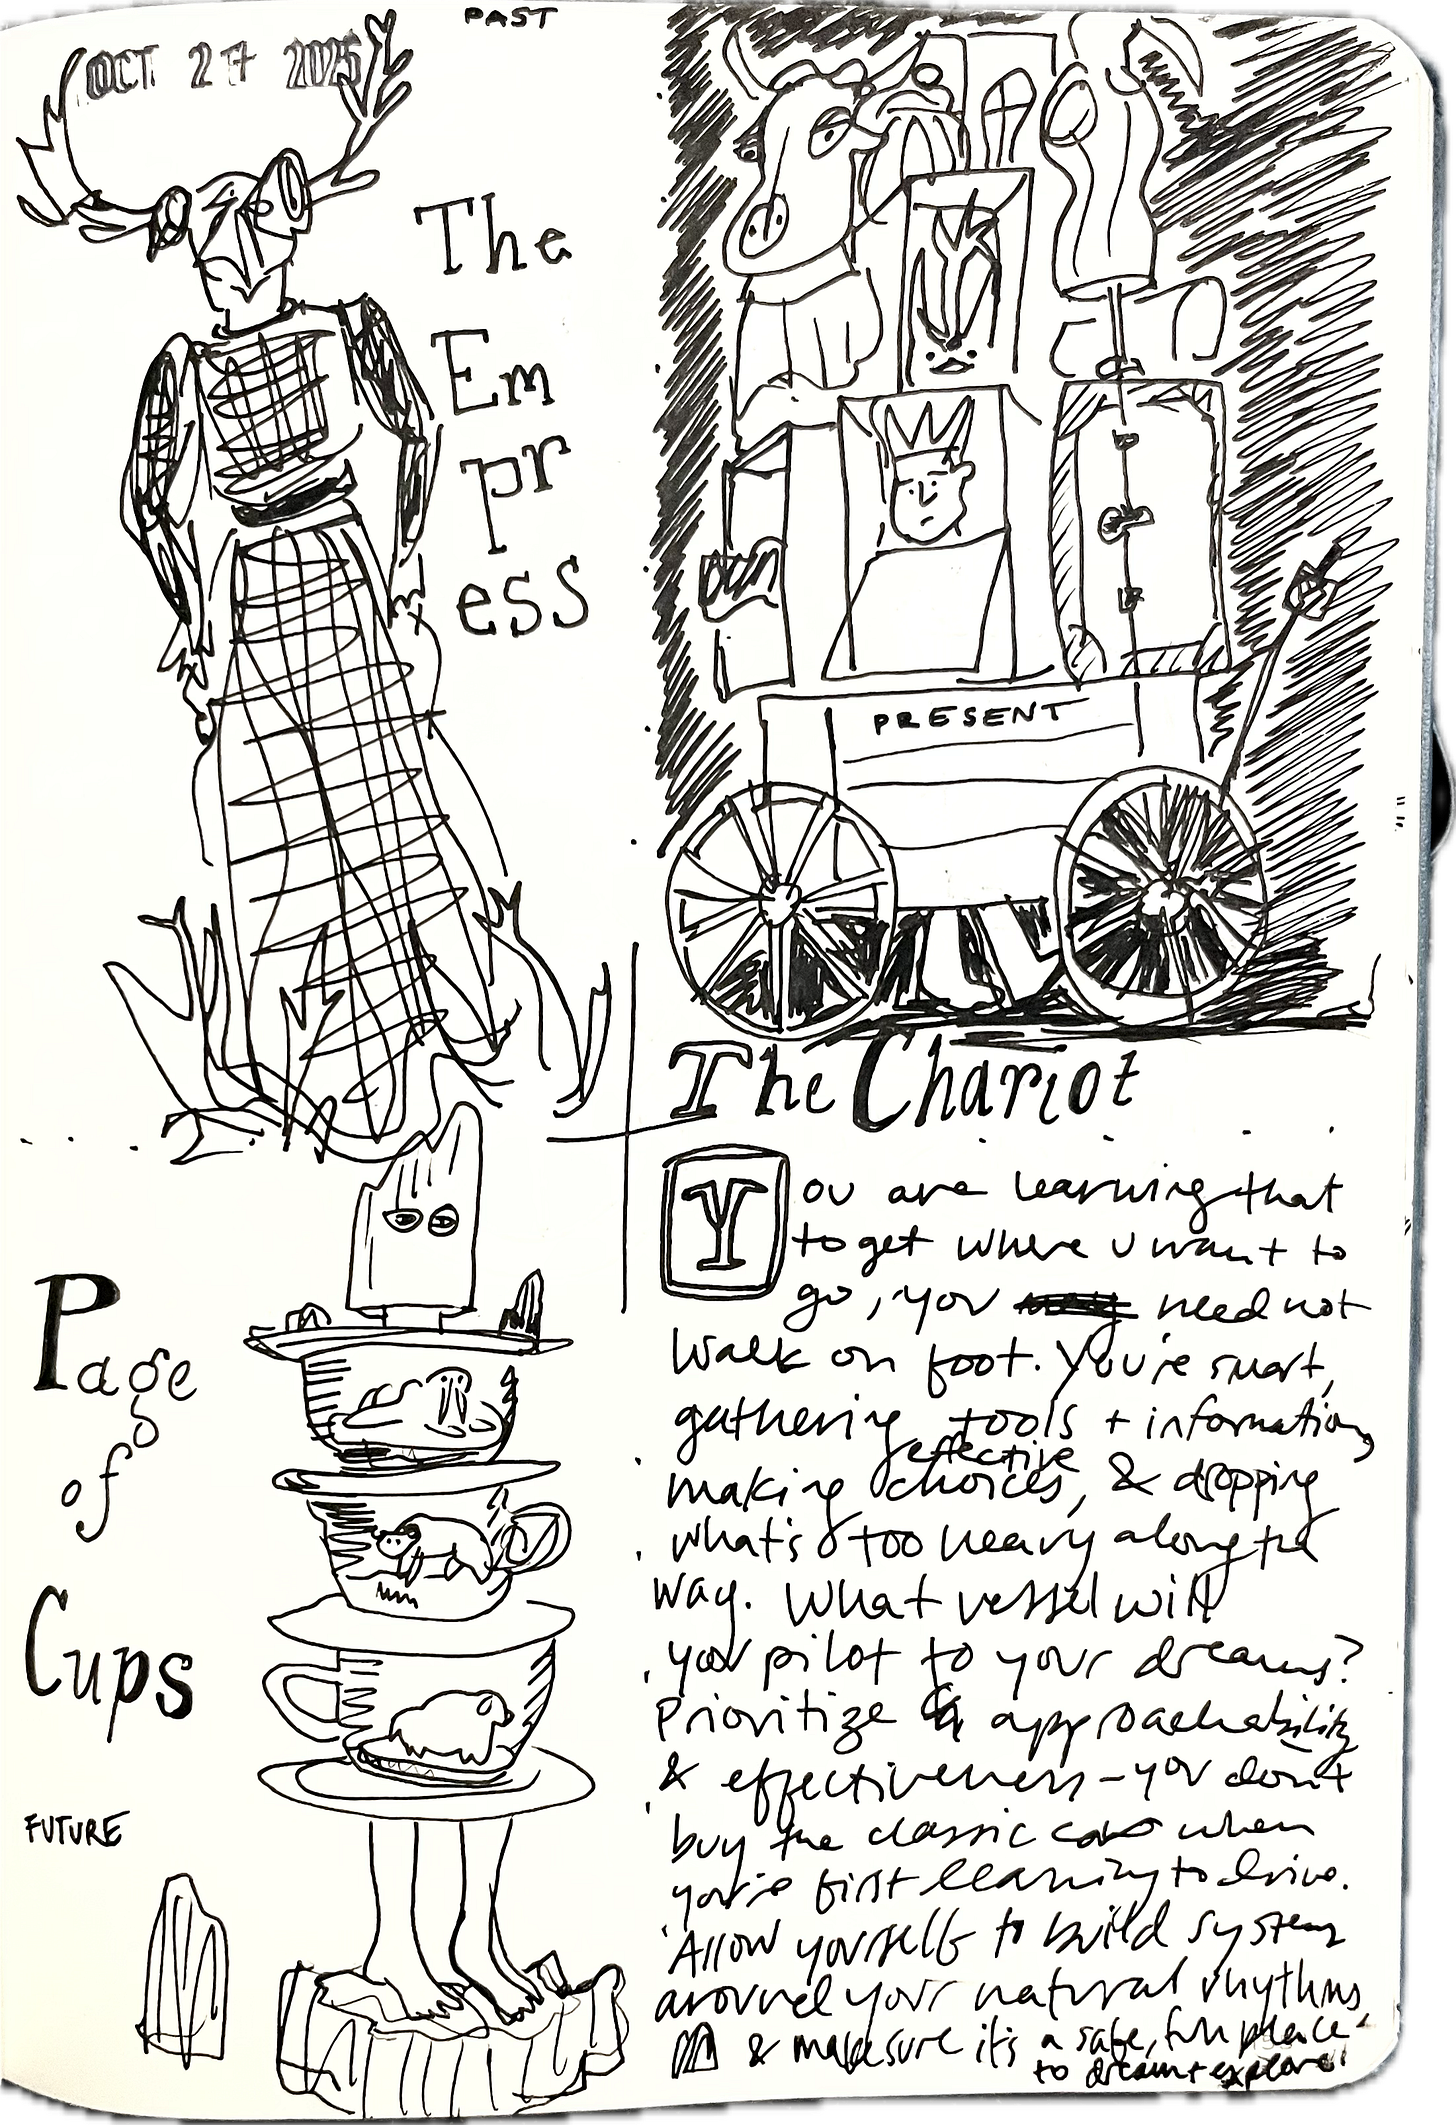 PAST
OCT 27 2025
The
Em
pr
ess
PRESENT
The Chariot
You are learning that
to get where u want to
go, you need not
walk on foot. You're smart,
gathering tools + information,
making effective choices, & dropping
what's too heavy along the
way. What vessel will
you pilot to your dreams?
Prioritize approachability
& effectiveness - you don't
buy the classic car when
you're first learning to drive.
Allow yourself to build systems
around your natural rhythms,
& make sure it's a safe, fun place
to dream + explore!
Page
of
Cups
FUTURE